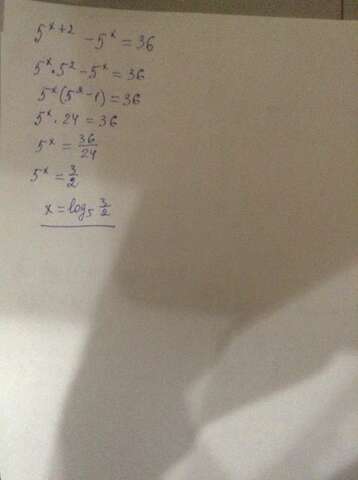 5^{x+2} - 5^x = 36
5^x · 5^2 - 5^x = 36
5^x (5^2 - 1) = 36
5^x · 24 = 36
5^x = \frac{36}{24}
5^x = \frac{3}{2}
x = log_5 \frac{3}{2}